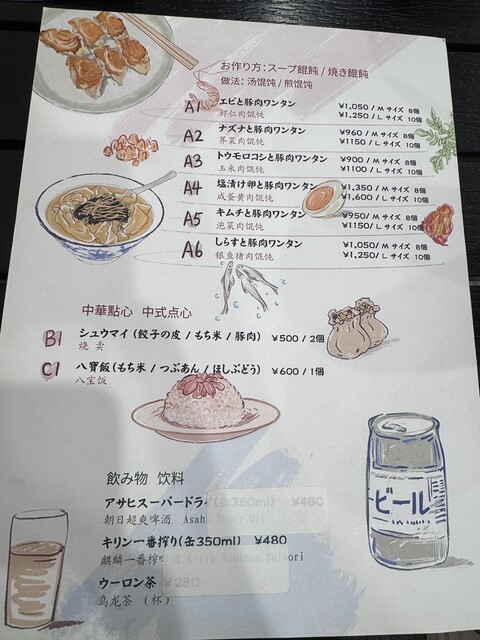 お作り方:スープ餛飩/焼き餛飩
做法:汤馄饨/煎馄饨
A1 エビと豚肉ワンタン ¥1,050/M サイズ 8個
虾仁肉馄饨 ¥1,250/L サイズ 10個
A2 ナズナと豚肉ワンタン ¥960/M サイズ 8個
荠菜肉馄饨 ¥1150/L サイズ 10個
A3 トウモロコシと豚肉ワンタン ¥900/M サイズ 8個
玉米肉馄饨 ¥1100/L サイズ 10個
A4 塩漬け卵と豚肉ワンタン ¥1,350/M サイズ 8個
咸蛋黄肉馄饨 ¥1,600/L サイズ 10個
A5 キムチと豚肉ワンタン ¥950/M サイズ 8個
泡菜肉馄饨 ¥1150/L サイズ 10個
A6 しらすと豚肉ワンタン ¥1,050/M サイズ 8個
银鱼猪肉馄饨 ¥1,250/L サイズ 10個
中華點心 中式点心
B1 シュウマイ(餃子の皮/もち米/豚肉) ¥500/2個
烧卖
C1 八寶飯(もち米/つぶあん/ほしぶどう) ¥600/1個
八宝饭
飲み物 饮料
アサヒスーパードライ(缶350ml) ¥480
朝日超爽啤酒 Asahi Super Dry
キリン一番搾り(缶350ml) ¥480
麒麟一番榨啤酒 Kirin Ichiban Shibori
ウーロン茶 ¥280
乌龙茶 (杯)
ビール